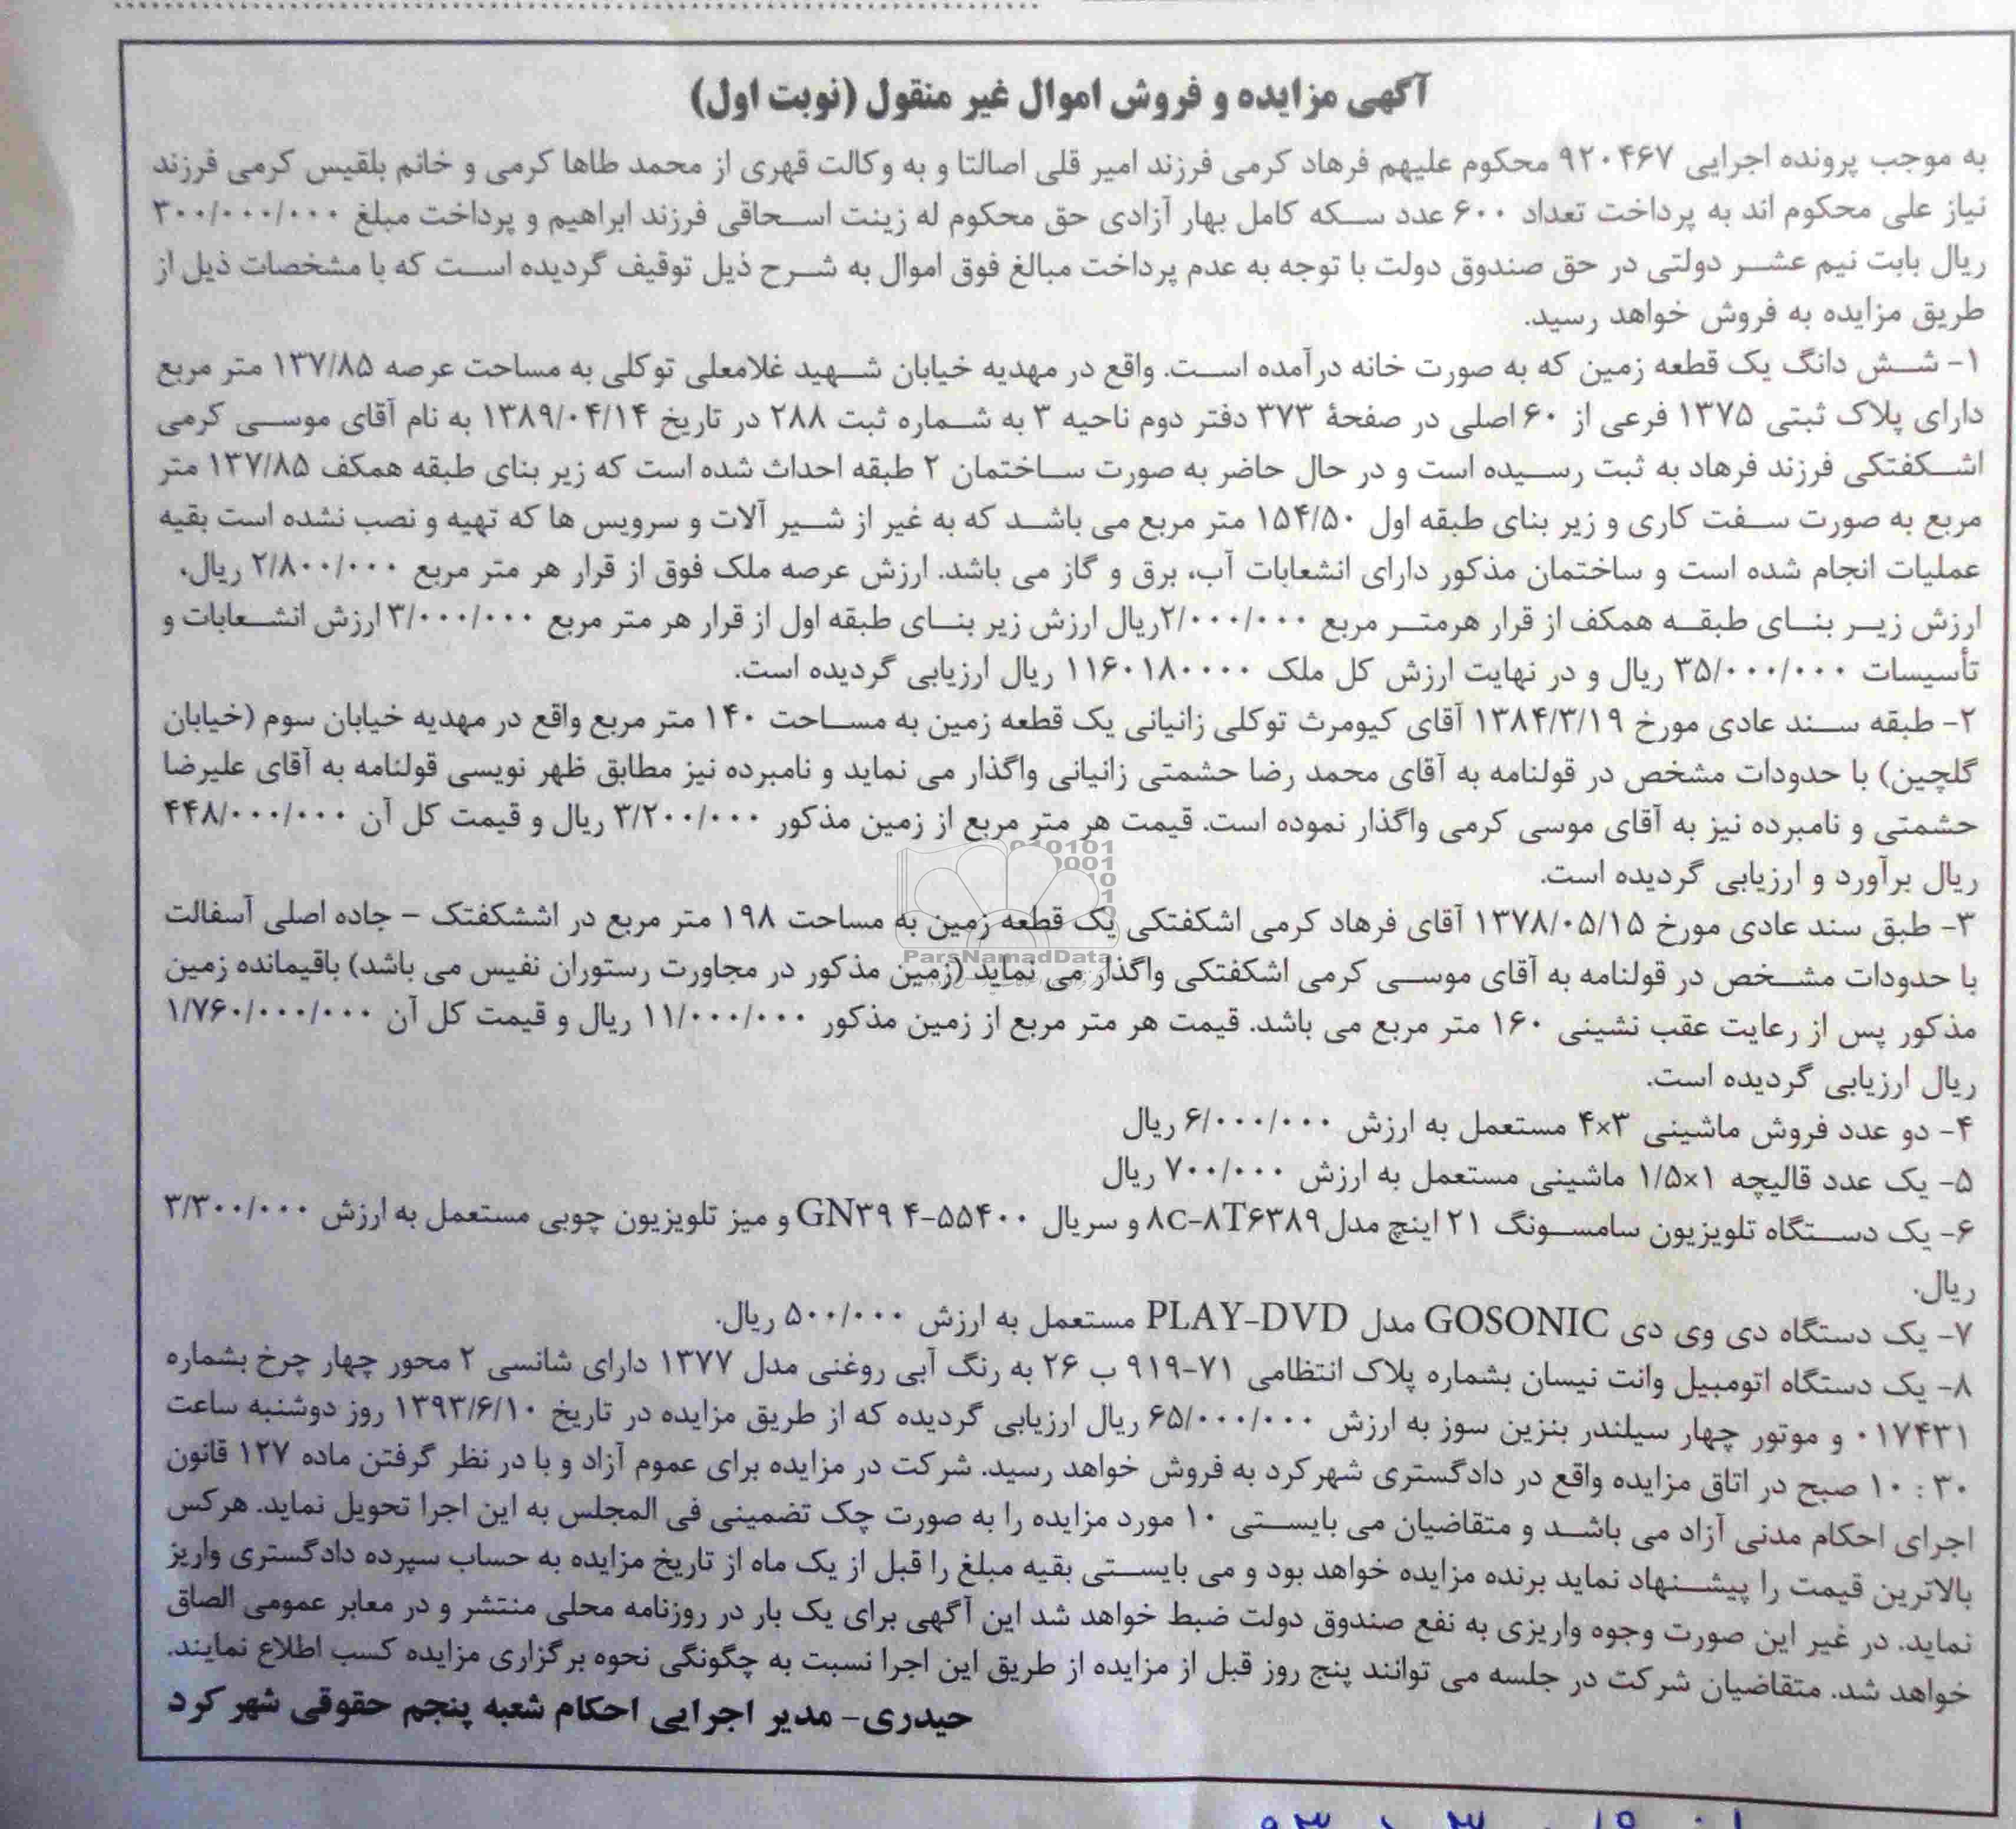 آگهی مزایده و فروش اموال غیر منقول (نوبت اول)
به موجب پرونده اجرایی ۹۲۰۴۶۷ محکوم علیهم فرهاد کرمی فرزند امیر قلی اصالتا و به وکالت قهری از محمد طاها کرمی و خانم بلقیس کرمی فرزند
نیاز علی محکوم اند به پرداخت تعداد ۶۰۰ عدد سکه کامل بهار آزادی حق محکوم له زینت اسحاقی فرزند ابراهیم و پرداخت مبلغ ۳۰۰/۰۰۰/۰۰۰
ریال بابت نیم عشر دولتی در حق صندوق دولت با توجه به عدم پرداخت مبالغ فوق اموال به شرح ذیل توقیف گردیده است که با مشخصات ذیل از
طریق مزایده به فروش خواهد رسید.
۱- شش دانگ یک قطعه زمین که به صورت خانه درآمده است. واقع در مهدیه خیابان شهید غلامعلی توکلی به مساحت عرصه ۱۳۷/۸۵ متر مربع
دارای پلاک ثبتی ۱۳۷۵ فرعی از ۶۰ اصلی در صفحهٔ ۳۷۳ دفتر دوم ناحیه ۳ به شماره ثبت ۲۸۸ در تاریخ ۱۳۸۹/۰۴/۱۴ به نام آقای موسی کرمی
اشکفتکی فرزند فرهاد به ثبت رسیده است و در حال حاضر به صورت ساختمان ۲ طبقه احداث شده است که زیر بنای طبقه همکف ۱۳۷/۸۵ متر
مربع به صورت سفت کاری و زیر بنای طبقه اول ۱۵۴/۵۰ متر مربع می باشد که به غیر از شیر آلات و سرویس ها که تهیه و نصب نشده است بقیه
عملیات انجام شده است و ساختمان مذکور دارای انشعابات آب، برق و گاز می باشد. ارزش عرصه ملک فوق از قرار هر متر مربع ۲/۸۰۰/۰۰۰ ریال.
ارزش زیر بنای طبقه همکف از قرار هرمتر مربع ۲/۰۰۰/۰۰۰ریال ارزش زیر بنای طبقه اول از قرار هر متر مربع ۳/۰۰۰/۰۰۰ ارزش انشعابات و
تأسیسات ۳۵/۰۰۰/۰۰۰ ریال و در نهایت ارزش کل ملک ۱۱۶۰۱۸۰۰۰۰ ریال ارزیابی گردیده است.
۲- طبقه سند عادی مورخ ۱۳۸۴/۳/۱۹ آقای کیومرث توکلی زانیانی یک قطعه زمین به مساحت ۱۴۰ متر مربع واقع در مهدیه خیابان سوم (خیابان
گلچین) با حدودات مشخص در قولنامه به آقای محمد رضا حشمتی زانیانی واگذار می نماید و نامبرده نیز مطابق ظهر نویسی قولنامه به آقای علیرضا
حشمتی و نامبرده نیز به آقای موسی کرمی واگذار نموده است. قیمت هر متر مربع از زمین مذکور ۳/۲۰۰/۰۰۰ ریال و قیمت کل آن ۴۴۸/۰۰۰/۰۰۰
ریال برآورد و ارزیابی گردیده است.
۳- طبق سند عادی مورخ ۱۳۷۸/۰۵/۱۵ آقای فرهاد کرمی اشکفتکی یک قطعه زمین به مساحت ۱۹۸ متر مربع در اششکفتک – جاده اصلی آسفالت
با حدودات مشخص در قولنامه به آقای موسی کرمی اشکفتکی واگذار می نماید (زمین مذکور در مجاورت رستوران نفیس می باشد) باقیمانده زمین
مذکور پس از رعایت عقب نشینی ۱۶۰ متر مربع می باشد. قیمت هر متر مربع از زمین مذکور ۱۱/۰۰۰/۰۰۰ ریال و قیمت کل آن ۱/۷۶۰/۰۰۰/۰۰۰
ریال ارزیابی گردیده است.
۴- دو عدد فروش ماشینی ۳×۴ مستعمل به ارزش ۶/۰۰۰/۰۰۰ ریال
۵- یک عدد قالیچه ۱×۱/۵ ماشینی مستعمل به ارزش ۷۰۰/۰۰۰ ریال
۶- یک دستگاه تلویزیون سامسونگ ۲۱ اینچ مدل ۸C-۸T۶۳۸۹ و سریال GN۳۹ ۴-۵۵۴۰۰ و میز تلویزیون چوبی مستعمل به ارزش ۳/۳۰۰/۰۰۰
ریال.
۷- یک دستگاه دی وی دی GOSONIC مدل PLAY-DVD مستعمل به ارزش ۵۰۰/۰۰۰ ریال.
۸- یک دستگاه اتومبیل وانت نیسان بشماره پلاک انتظامی ۷۱-۹۱۹ ب ۲۶ به رنگ آبی روغنی مدل ۱۳۷۷ دارای شانسی ۲ محور چهار چرخ بشماره
۰۱۷۴۳۱ و موتور چهار سیلندر بنزین سوز به ارزش ۶۵/۰۰۰/۰۰۰ ریال ارزیابی گردیده که از طریق مزایده در تاریخ ۱۳۹۳/۶/۱۰ روز دوشنبه ساعت
۱۰ : ۳۰ صبح در اتاق مزایده واقع در دادگستری شهرکرد به فروش خواهد رسید. شرکت در مزایده برای عموم آزاد و با در نظر گرفتن ماده ۱۲۷ قانون
اجرای احکام مدنی آزاد می باشد و متقاضیان می بایستی ۱۰ مورد مزایده را به صورت چک تضمینی فی المجلس به این اجرا تحویل نماید. هرکس
بالاترین قیمت را پیشنهاد نماید برنده مزایده خواهد بود و می بایستی بقیه مبلغ را قبل از یک ماه از تاریخ مزایده به حساب سپرده دادگستری واریز
نماید. در غیر این صورت وجوه واریزی به نفع صندوق دولت ضبط خواهد شد این آگهی برای یک بار در روزنامه محلی منتشر و در معابر عمومی الصاق
خواهد شد. متقاضیان شرکت در جلسه می توانند پنج روز قبل از مزایده از طریق این اجرا نسبت به چگونگی نحوه برگزاری مزایده کسب اطلاع نمایند.
حیدری- مدیر اجرایی احکام شعبه پنجم حقوقی شهرکرد
ParsNamadData